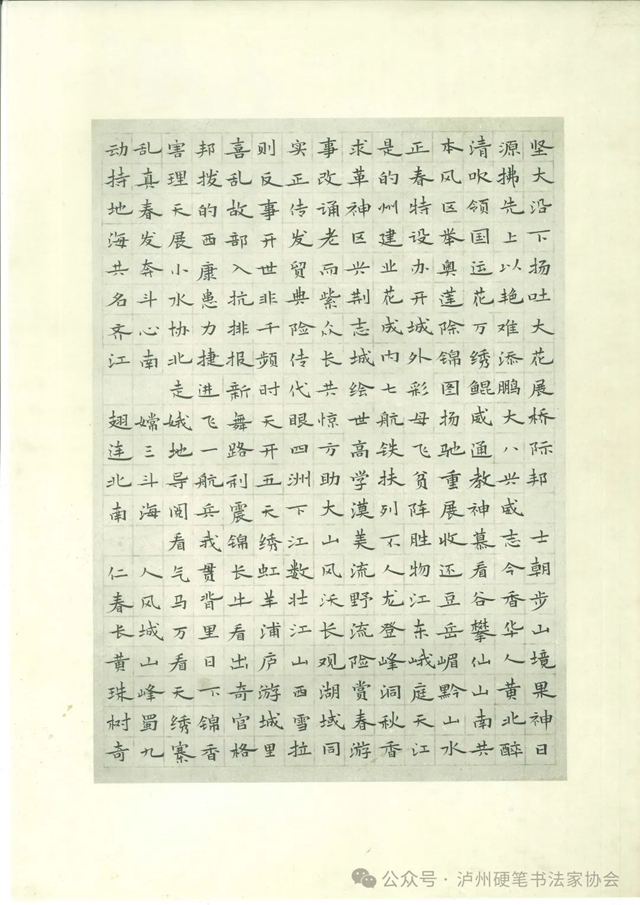 动乱害邦喜则实事求是正本清源坚
持真理拨乱反正改革的春风吹拂大
地春天的故事传诵神州特区领先沿
海发展西部开发老区建设举国上下
共奔小康入世贸而兴业办奥运以扬
名斗水患抗非典紫荆花开莲花艳吐
齐心协力排千险众志成城除万难大
江南北捷报频传长城内外锦绣添花
走进新时代共绘七彩图鲲鹏展
翅嫦娥飞舞天眼惊世航母扬威大桥
连三地一路开四方高铁飞驰通八际
北斗导航利五洲助学扶贫重教兴邦
南海阅兵震天下大漠列阵展神威
看我锦绣江山美不胜收慕志士
仁人气贯长虹数风流人物还看今朝
春风马背牛羊壮沃野龙江豆谷香步
长城万里看浦江长流登东岳攀华山
黄山看日出庐山观险峰峨嵋仙人境
珠峰天下奇游西湖赏洞庭黔山黄果
树蜀绣锦官城雪域春秋天山南北神
奇九寨香格里拉同游香江水共醉日
公众号·泸州硬笔书法家协会